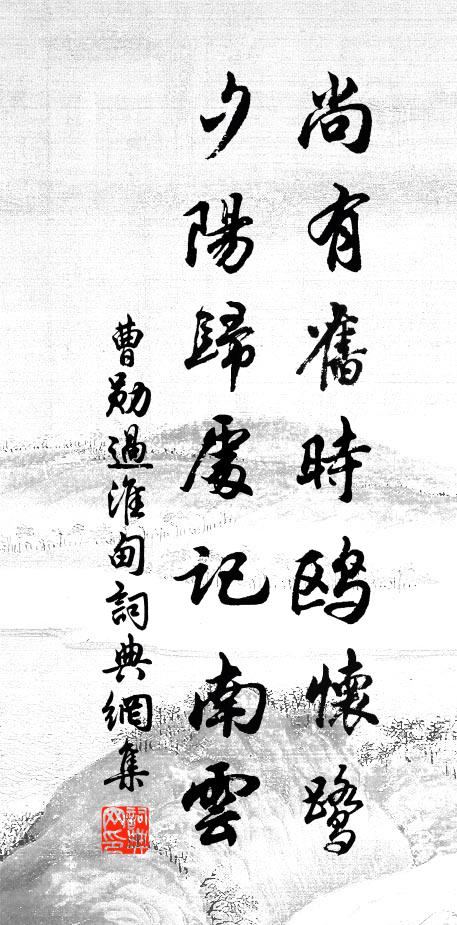 尚有舊時鸥懷鷺
夕陽歸處記南雲
曹勛過淮甸詞典網集